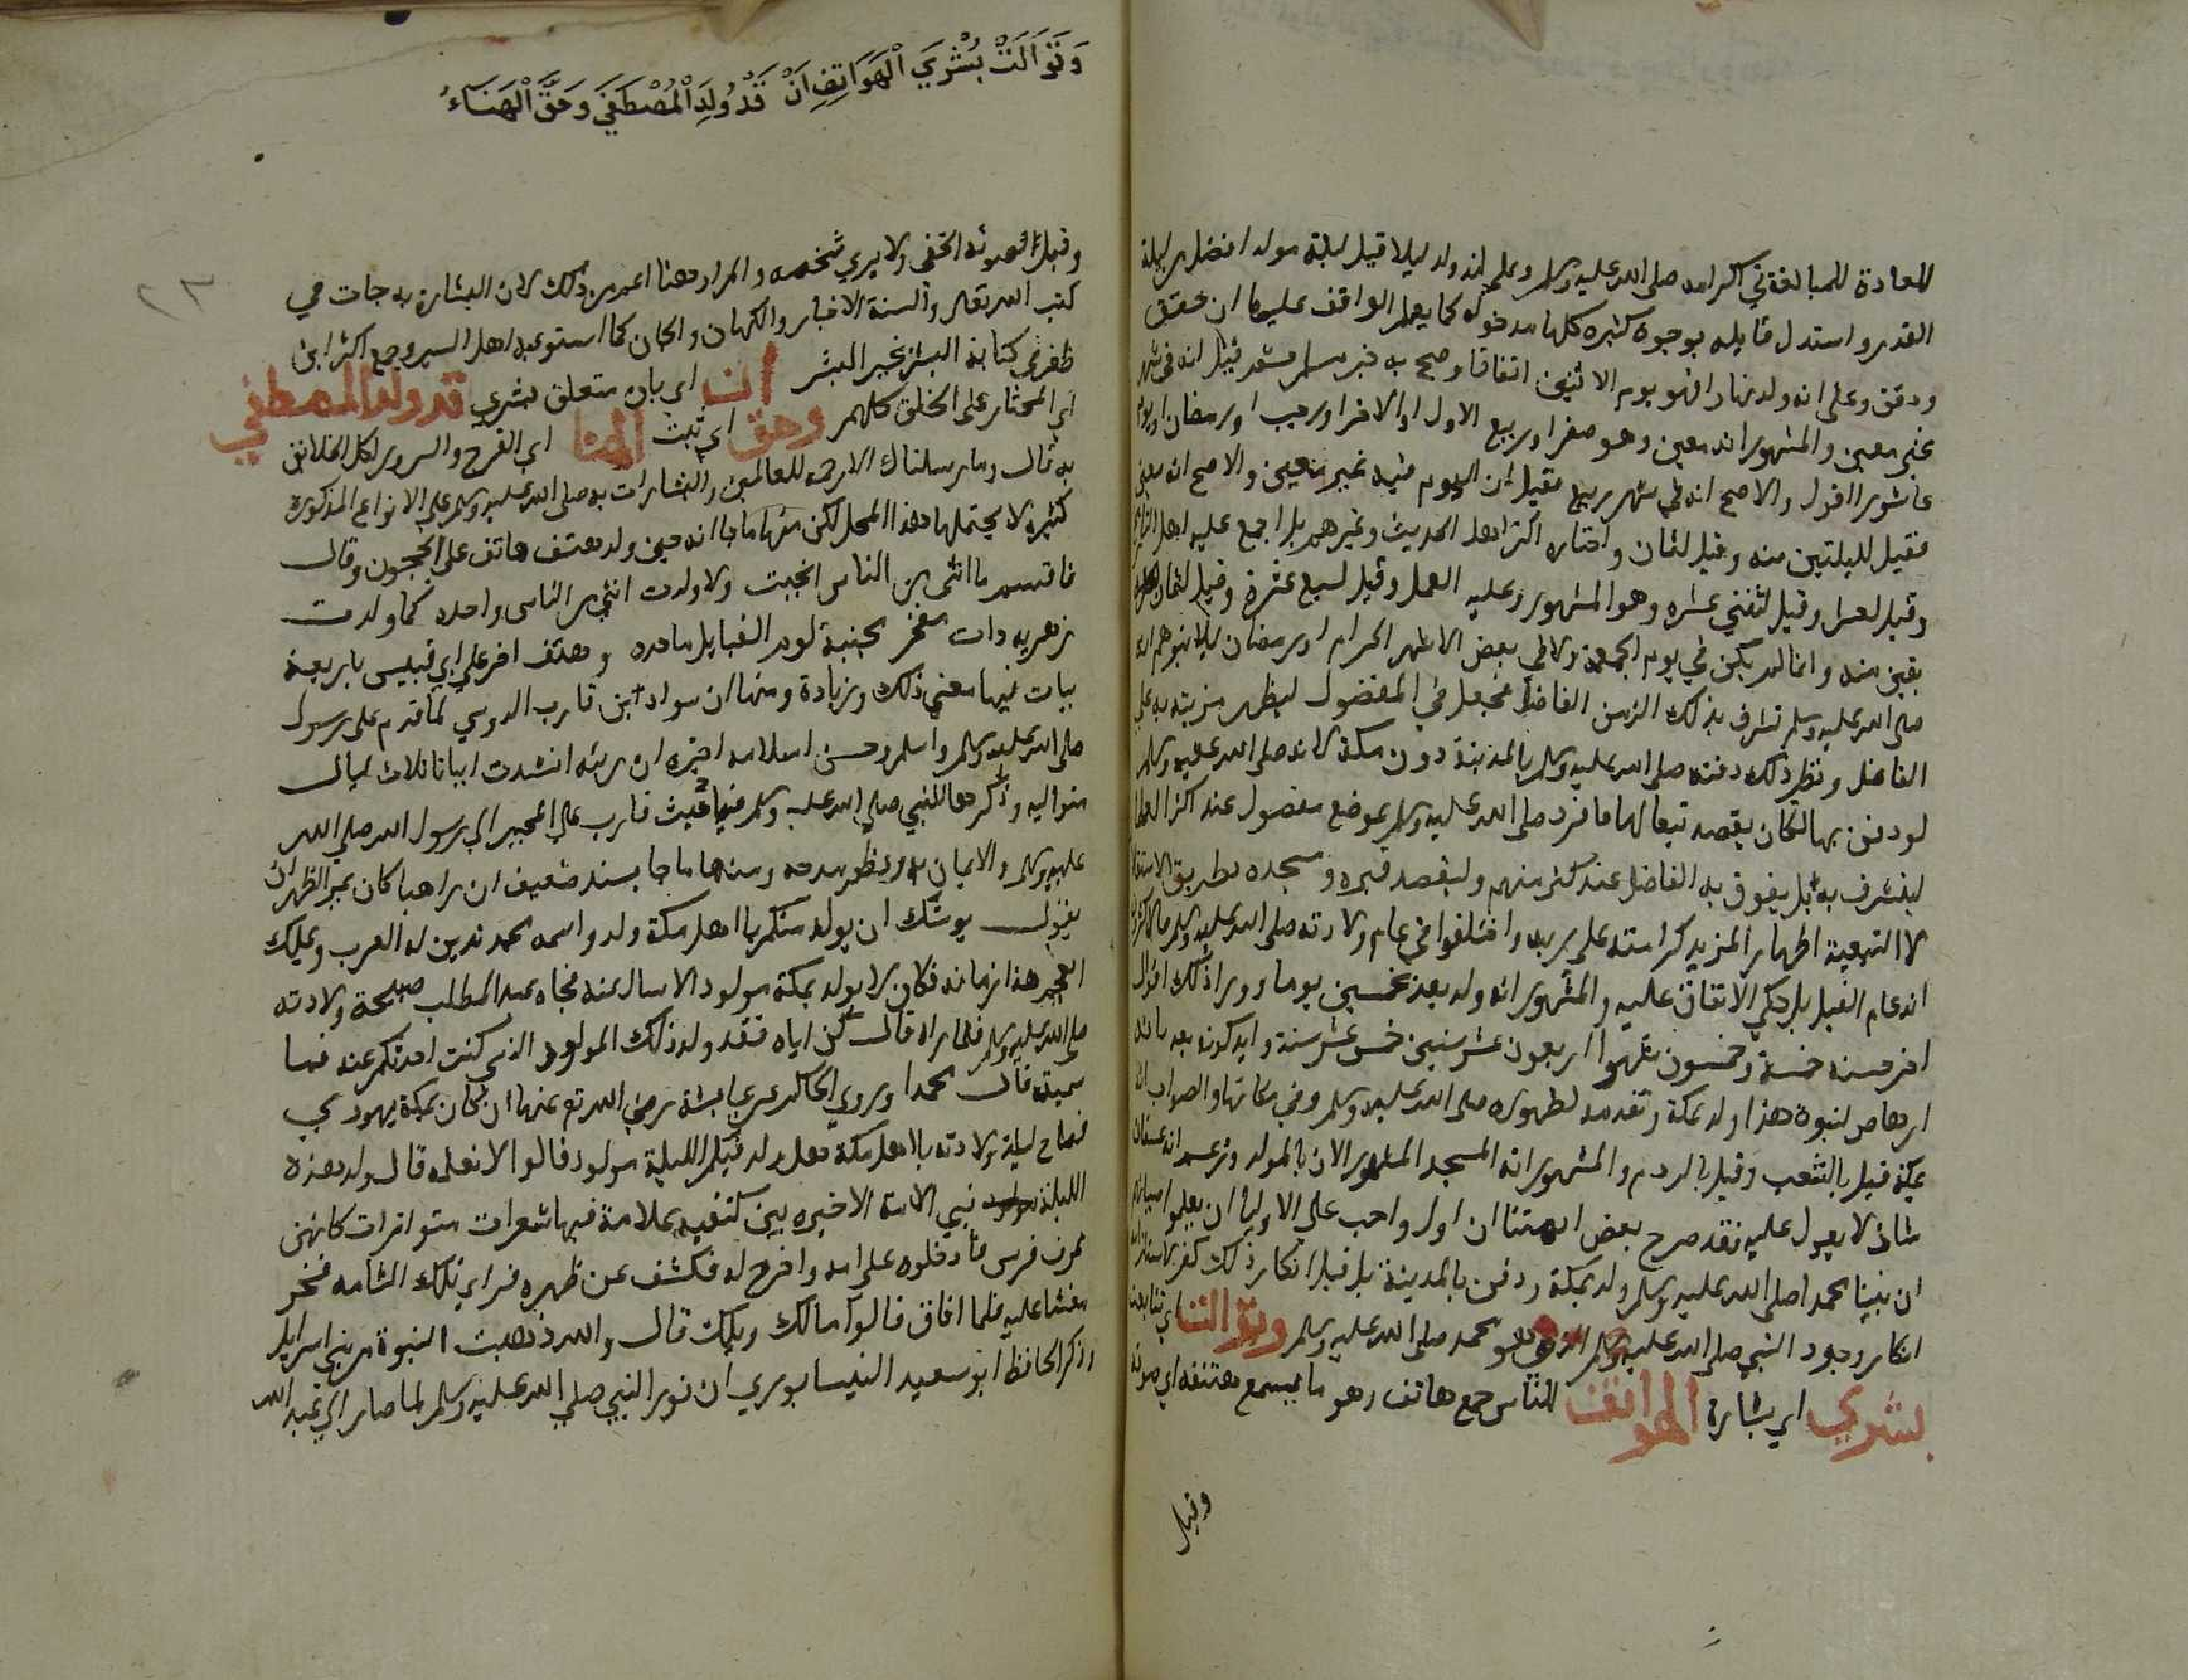 للعادة للمبالغة في اكرامه صلى الله عليه وسلم وعلى انه ولد ليلا قيل ليلة مولده افضل من ليلة
القدر واستدل قايله بوجوه كثيره كلها مدخوله كما يعلم الواقف عليها ان حقق
ودقق وعلى انه ولد نهارا فهو يوم الاثنين اتفاقا وصح به خبر مسلم ثم قيل انه في شهر
غير معين والمشهور انه معين وهو صفر او ربيع الاول او الاخر او رجب او رمضان او يوم
عاشورا اقول والاصح انه في شهر ربيع فقيل ان اليوم فيه غير متعين والاصح انه معين
فقيل لليلتين منه وقيل لثمان واختاره اكثر اهل الحديث وغيرهم بل اجمع عليه اهل
وقيل لعشر وقيل لثنتي عشره وهو المشهور وعليه العمل وقيل لسبع عشرة وقيل لثمان
بقين منه وانما لم يكن في يوم الجمعة ولا في بعض الاشهر الحرام او رمضان ليلا يتوهم انه
صلى الله عليه وسلم تشرف بذلك الزمن الفاضل فجعل في المفضول ليظهر مزيته به على
الفاضل ونظير ذلك دفنه صلى الله عليه وسلم بالمدينة دون مكة لانه صلى الله عليه وسلم
لو دفن بها لكان يقصد تبعا لها فافرد صلى الله عليه وسلم بموضع مفضول عند اكثر العلما
ليتشرف به بل يفوق به الفاضل عند كثير منهم وليقصد قبره ومسجده بطريق الاستقلا
لا التبعية اظهارا لمزيد كرامته على ربه واختلفوا في عام ولادته صلى الله عليه وسلم
انه عام الفيل بل حكي الاتفاق عليه والمشهور انه ولد بعد بخمسين يوما وورا ذلك اقوال
اخر منه خمسة وخمسون شهرا اربعون عشر سنين خمس عشر سنة وايد كونه بعد بانه
ارهاص لنبوة هذا ولد بمكة وتقدمه لظهوره صلى الله عليه وسلم وفي مكانها والصواب انه
بمكة قيل بالشعب وقيل بالردم والمشهور انه المسجد المشهور الان بالمولد وزعم انه عسفان
شاذ لا يعول عليه فقد صرح بعض ايمتنا ان اول واجب على الاوليا ان يعلموا صبيانهم
ان نبينا محمدا صلى الله عليه وسلم ولد بمكة ودفن بالمدينة بل قيل انكار ذلك كفر لاستلزامه
انكار وجود النبي صلى الله عليه وسلم الذي هو محمد صلى الله عليه وسلم وتوالت اي تتابعت
بشري اي بشارة الهواتف للناس جمع هاتف وهو ما يسمع هتفه اي صوته
وقيل
وَتَوَالَتْ بُشْرَي الْهَوَاتِفِ اَنْ قَدْ وُلِدَ الْمُصْطَفَي وَحَقَّ الْهَنَاءُ
٢٣
وقيل الصوت الخفي ولا يري شخصه والمراد هنا اعم من ذلك لان البشارة به جات في
كتب الله تعالى والسنة الاخبار والكهان والجان كما استوعبه اهل السير وجمع اكثر ابن
ظفر في كتابه البشر بخير البشر ان اي بان متعلق ببشري قد ولد المصطفي
اي المختار على الخلق كلهم وحق اي ثبت الهنا اي الفرح والسرور لكل الخلائق
به قال وما ارسلناك الا رحمة للعالمين والبشارات به صلى الله عليه وسلم علي الانواع المذكورة
كثيره لا يحتملها هذا المحل لكن منها ما جا انه حين ولد هتف هاتف على الحجون وقال
فاقسم ما انثى من الناس انجبت ولا ولدت انثي من الناس واحده كما ولدت
زهريه ذات مفخر مجنبة لوم القبايل ماجده وهتف اخر علي ابي قبيس باربعة
بيات فيها معني ذلك وزيادة ومنها ان سواد ابن قارب الدوسي لما قدم على رسول
صلى الله عليه وسلم واسلم وحسن اسلامه اخبره ان رئيه انشدت ابياتا ثلاث ليال
متواليه وذكرها للنبي صلى الله عليه وسلم فيها حيث قارب على المجير الي رسول الله صلي الله
عليه وسلم والايمان به ونظم مدحه ومنها ما جا بسند ضعيف ان راهبا كان بمر الظهران
يقول يوشك ان يولد منكم يا اهل مكة ولد واسمه محمد تدين له العرب ويملك
العجم هذا زمانه فكان لا يولد بمكة مولود الا سال عنه فجاه عبد المطلب صبيحة ولادته
صلى الله عليه وسلم فلما راه قال كن اياه فقد ولد ذلك المولود الذي كنت احدثكم عنه فما
سميته قال محمدا وروي الحاكم عن عايشة رضي الله تع عنها ان كان بمكة يهودي
فصاح ليلة ولادته يا اهل مكة هل ولد فيكم الليلة مولود فقالوا لا نعلمه قال ولد هذه
الليلة نبي الامة الاخيره بين كتفيه علامة فيها شعرات متواترات كانهن
عرف فرس فادخلوه على امه واخرج له فكشف عن ظهره فراي تلك الشامه فخر
مغشيا عليه فلما افاق قالوا مالك ويلك قال والله ذهبت النبوة من بني اسرايل
وذكر الحافظ ابو سعيد النيسابوري ان نور النبي صلي الله عليه وسلم لما صار الي عبد الله